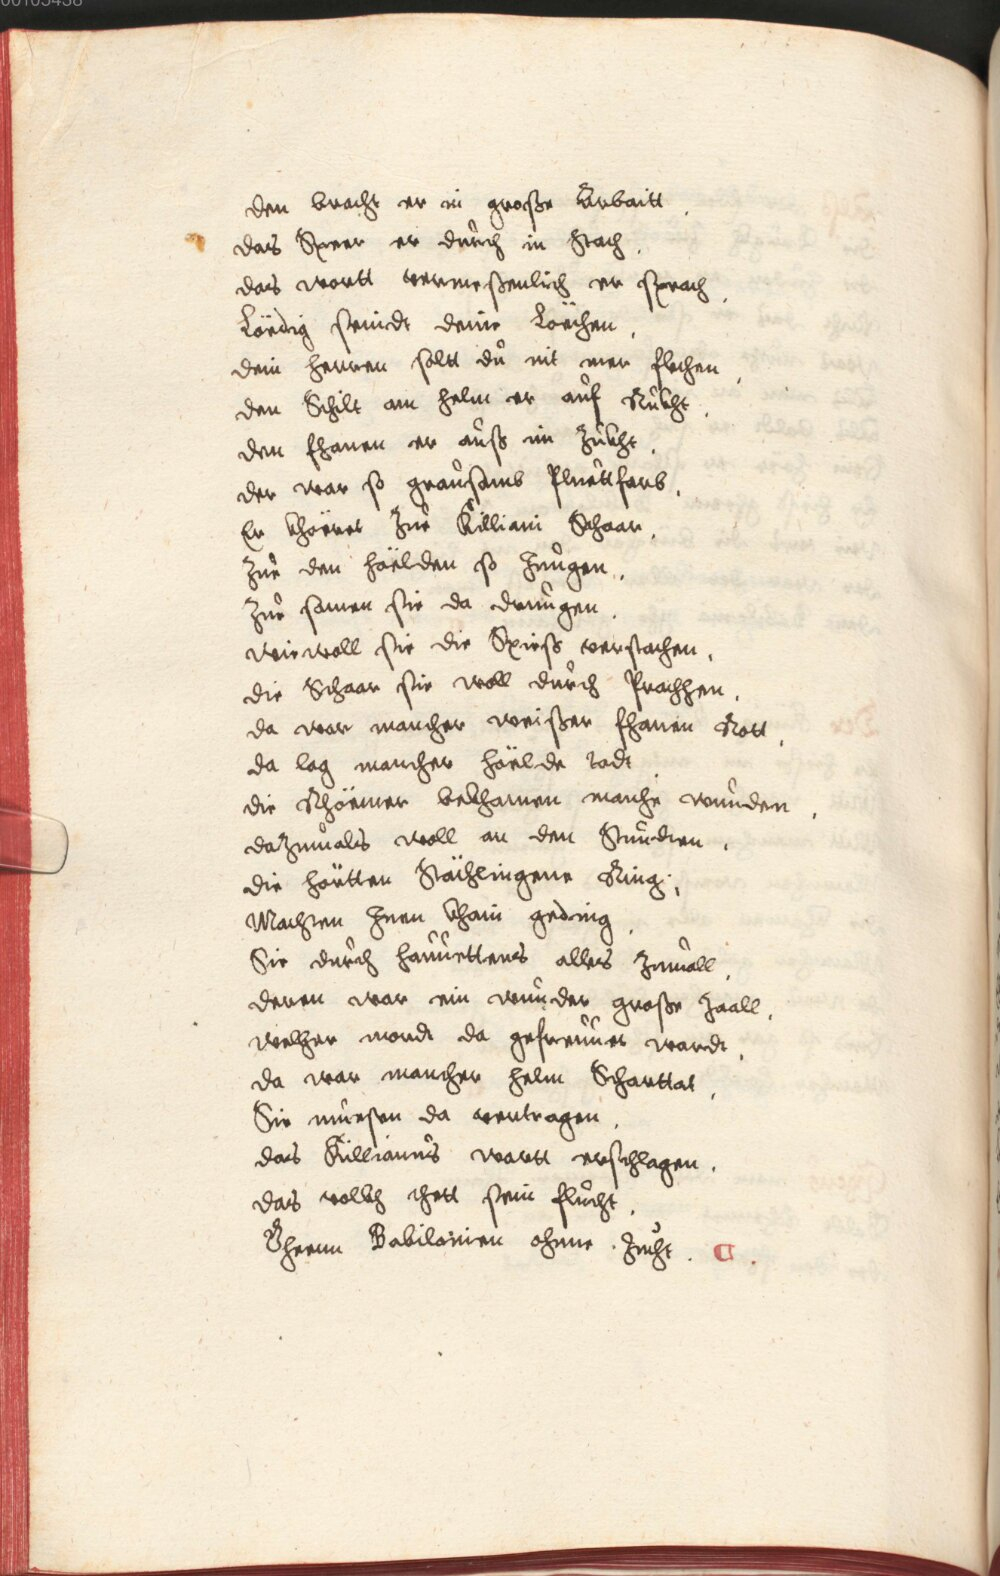 den bracht er in große Arbaitt.
das Speer er durch in stach.
das wortt vermeßenlich er sprach.
Löedig seindt deine Löechen.
dein herren soltt du nit mer flechen.
den Schilt am helm er auf Rukht.
den fhanen er auß im Zukht.
der war so grausamb Pluettfarb.
Er khöeret Zue Killiani Schaar.
Zue den höelden so Jungen.
Zue samen sie da drungen.
wie woll sie die Spieß verstachen.
die Schaar sie woll durch Prachhen.
da war mancher weißer fhanen Rott.
da lag mancher höelde todt
die Rhöemer bekhamen manche wunden.
daZumals woll an den Stundten.
die hörtten Stächlingene Ring.
Machten Inen khain geding.
Sie durch hauuettens alles Zumall.
deren war ein wunder große Zaall.
welher mordt da gefreuuet wardt.
da war mancher helm Scharttat.
Sie muesen da vertragen.
das Killianus wartt erschlagen.
das vollkh thett sein flucht.
Gheenn Babilonien ohnne Zucht.